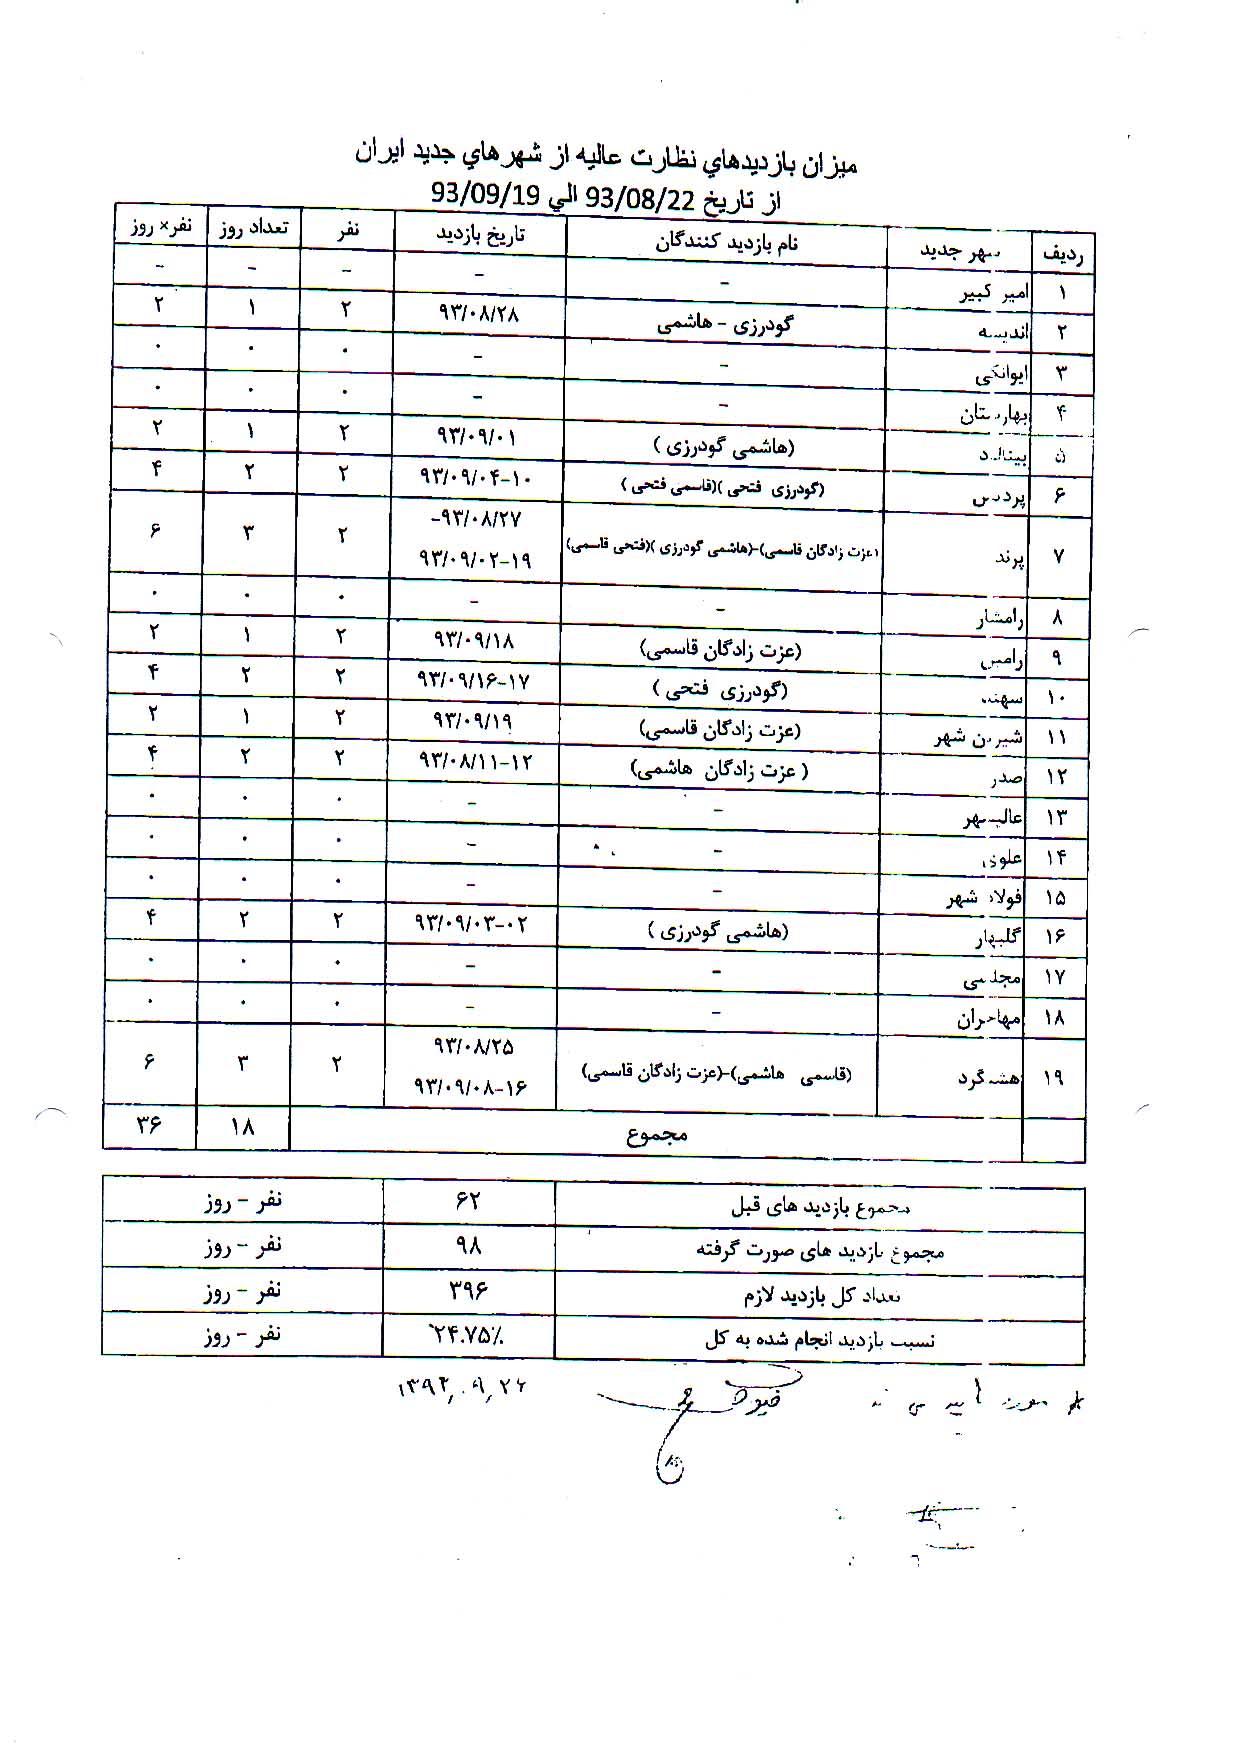 ميزان بازديدهاي نظارت عاليه از شهرهاي جديد ايران
از تاريخ 93/08/22 الي 93/09/19
ردیف شهر جدید نام بازدید کنندگان تاریخ بازدید نفر تعداد روز نفر× روز
۱ امیر کبیر - - - - -
۲ اندیشه گودرزی - هاشمی ۹۳/۰۸/۲۸ ۲ ۱ ۲
۳ ایوانکی - - ۰ ۰ ۰
۴ بهارستان - - ۰ ۰ ۰
۵ بینالود (هاشمی گودرزی ) ۹۳/۰۹/۰۱ ۲ ۱ ۲
۶ پردیس (گودرزی فتحی )(قاسمی فتحی ) ۹۳/۰۹/۰۴-۱۰ ۲ ۲ ۴
۷ پرند (عزت زادگان قاسمی)-(هاشمی گودرزی )(فتحی قاسمی) ۹۳/۰۸/۲۷- ۲ ۳ ۶
۹۳/۰۹/۰۲-۱۹
۸ رامشار - - ۰ ۰ ۰
۹ رامین (عزت زادگان قاسمی) ۹۳/۰۹/۱۸ ۲ ۱ ۲
۱۰ سهند (گودرزی فتحی ) ۹۳/۰۹/۱۶-۱۷ ۲ ۲ ۴
۱۱ شیرین شهر (عزت زادگان قاسمی) ۹۳/۰۹/۱۹ ۲ ۱ ۲
۱۲ صدرا ( عزت زادگان هاشمی) ۹۳/۰۸/۱۱-۱۲ ۲ ۲ ۴
۱۳ عالیشهر - - ۰ ۰ ۰
۱۴ علوی - - ۰ ۰ ۰
۱۵ فولاد شهر - - ۰ ۰ ۰
۱۶ گلبهار (هاشمی گودرزی ) ۹۳/۰۹/۰۳-۰۲ ۲ ۲ ۴
۱۷ مجلسی - - ۰ ۰ ۰
۱۸ مهاجران - - ۰ ۰ ۰
۱۹ هشتگرد (قاسمی هاشمی)-(عزت زادگان قاسمی) ۹۳/۰۸/۲۵ ۲ ۳ ۶
۹۳/۰۹/۰۸-۱۶
مجموع ۱۸ ۳۶
مجموع بازدید های قبل ۶۲ نفر - روز
مجموع بازدید های صورت گرفته ۹۸ نفر - روز
تعداد کل بازدید لازم ۳۹۶ نفر - روز
نسبت بازدید انجام شده به کل ۲۴.۷۵٪ نفر - روز
* مورد تایید می